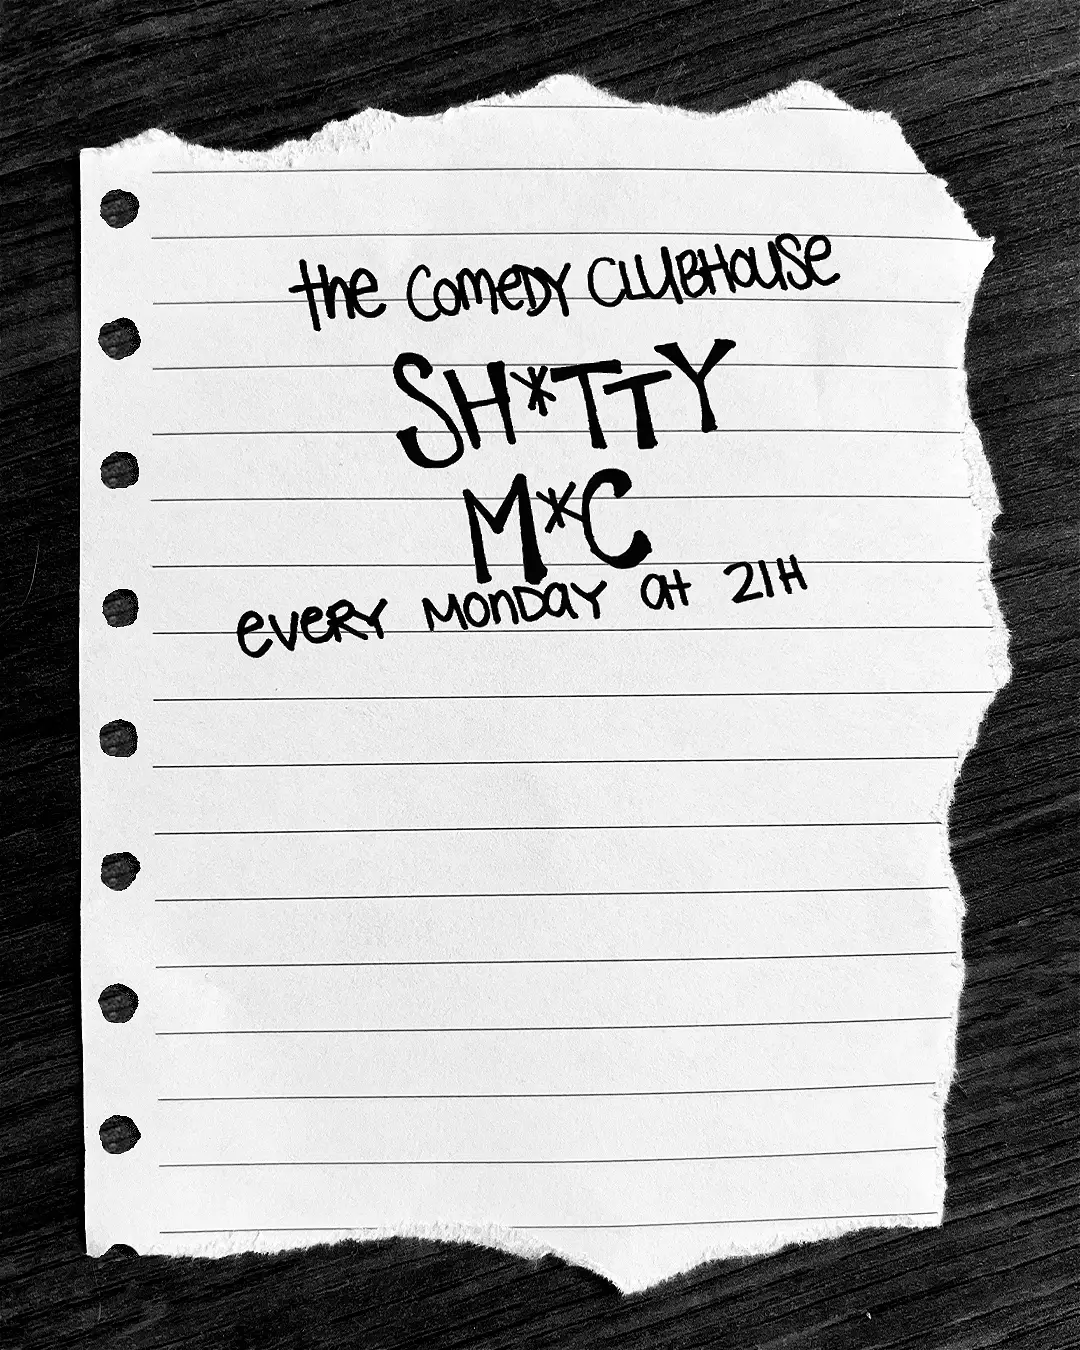 the COMEDY CLUBHOUSE
SH*TTY
M*C
EVERY MONDAY at 21H